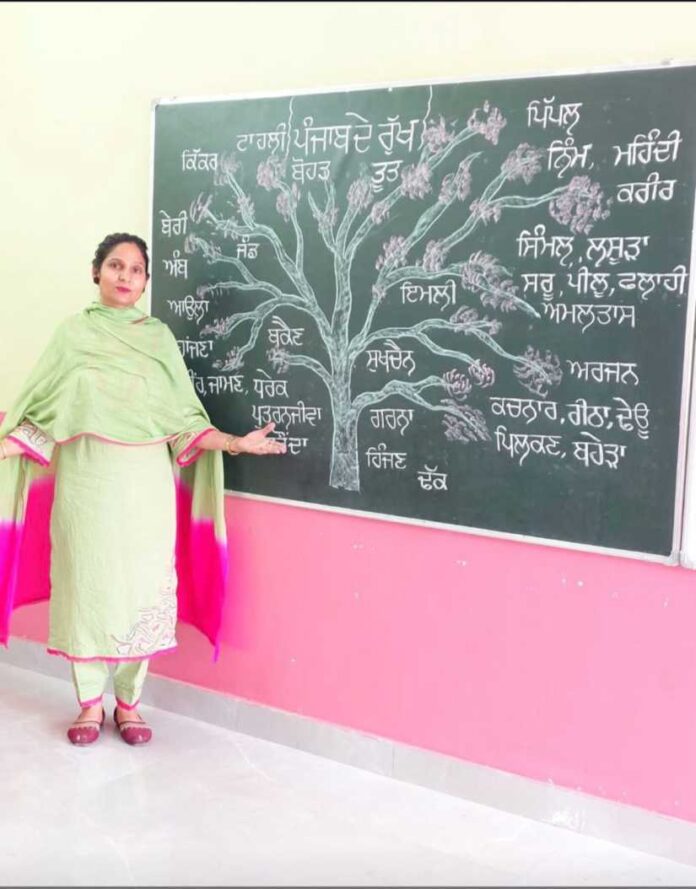 ਪੰਜਾਬ ਦੇ ਰੁੱਖ
ਟਾਹਲੀ
ਕਿੱਕਰ
ਬੋਹੜ
ਤੂਤ
ਪਿੱਪਲ
ਨਿੰਮ, ਮਹਿੰਦੀ
ਕਰੀਰ
ਬੇਰੀ
ਜੰਡ
ਅੰਬ
ਸਿੰਮਲ, ਲਸੂੜਾ
ਸਰੂ, ਪੀਲੂ, ਫਲਾਹੀ
ਅਮਲਤਾਸ
ਆਉਲਾ
ਇਮਲੀ
ਬਕੈਣ
ਸੁਖਚੈਨ
ਅਰਜਨ
ਜਾਮਣ, ਧਰੇਕ
ਪੁਤਰਨਜੀਵਾ
ਗਰਨਾ
ਕਚਨਾਰ, ਰੀਠਾ, ਢੇਊ
ਪਿਲਕਣ, ਬਹੇੜਾ
ਹਿੰਜਣ
ਢੱਕ